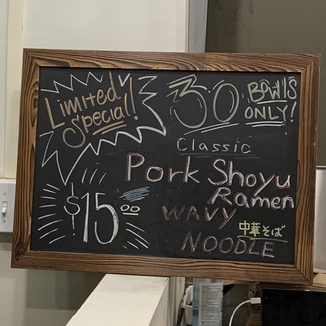 Limited
Special!
30 BOWLS
ONLY!
Classic
Pork Shoyu
Ramen
$15.00
WAVY
中華そば
NOODLE